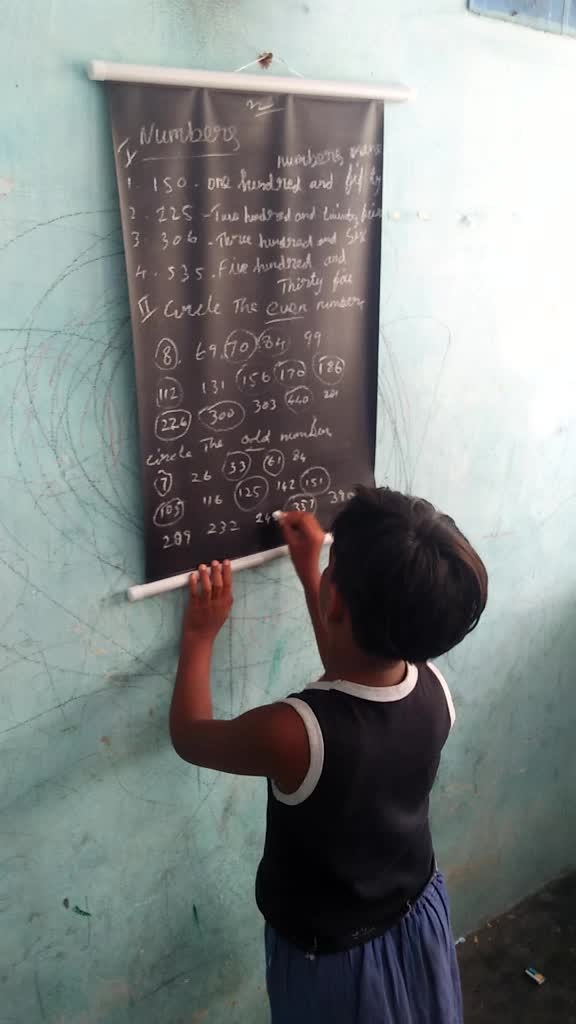 I Numbers
numbers name
1. 150 - one hundred and fifty
2. 225 - Two hundred and twenty five
3. 306 - Three hundred and Six
4. 535 - Five hundred and
Thirty five
II Circle The even number
8, 69, 70 84 99
112 131 156 170 186
226 300 303 440 201
circle The odd number
7 26 33 61 84
105 116 125 142 151
289 232 357 390